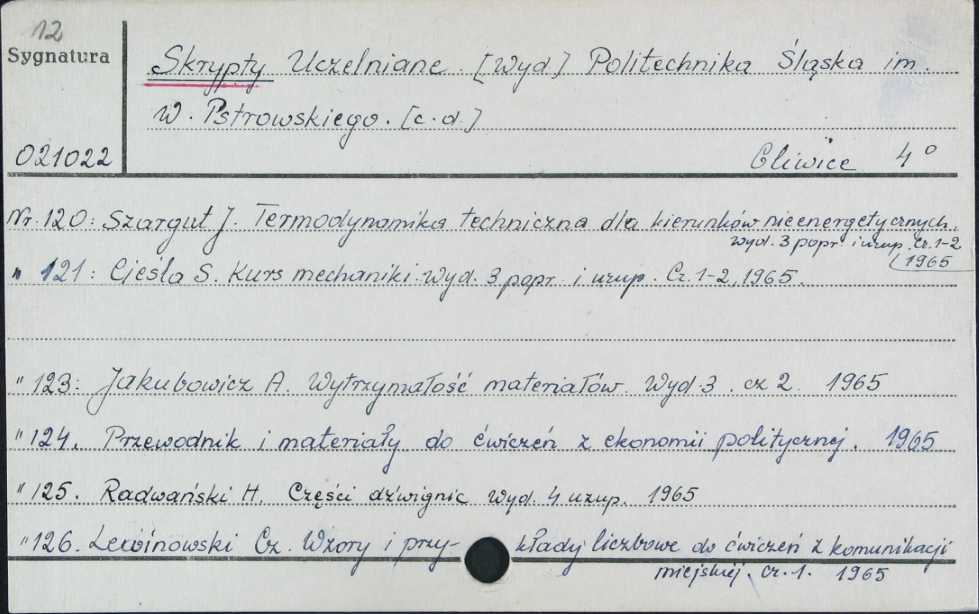 12
Sygnatura
Skrypty Uczelniane. [Wyd] Politechnika Śląska im.
W. Pstrowskiego. [c.d.]
021022
Gliwice 4°
Nr. 120: Szargut J. Termodynamika techniczna dla kierunków nieenergetycznych.
wyd. 3 popr i uzup. Cz. 1-2
1965
" 121: Cieśla S. Kurs mechaniki. Wyd. 3 popr. i uzup. Cz. 1-2, 1965.
" 123: Jakubowicz A. Wytrzymałość materiałów. Wyd 3. cz 2. 1965
" 124. Przewodnik i materiały do ćwiczeń z ekonomii politycznej. 1965
" 125. Radwański H. Części dźwignic wyd. 4 uzup. 1965
" 126. Lewinowski Cz. Wzory i przy- kłady liczbowe do ćwiczeń z komunikacji
miejskiej. cz. 1. 1965